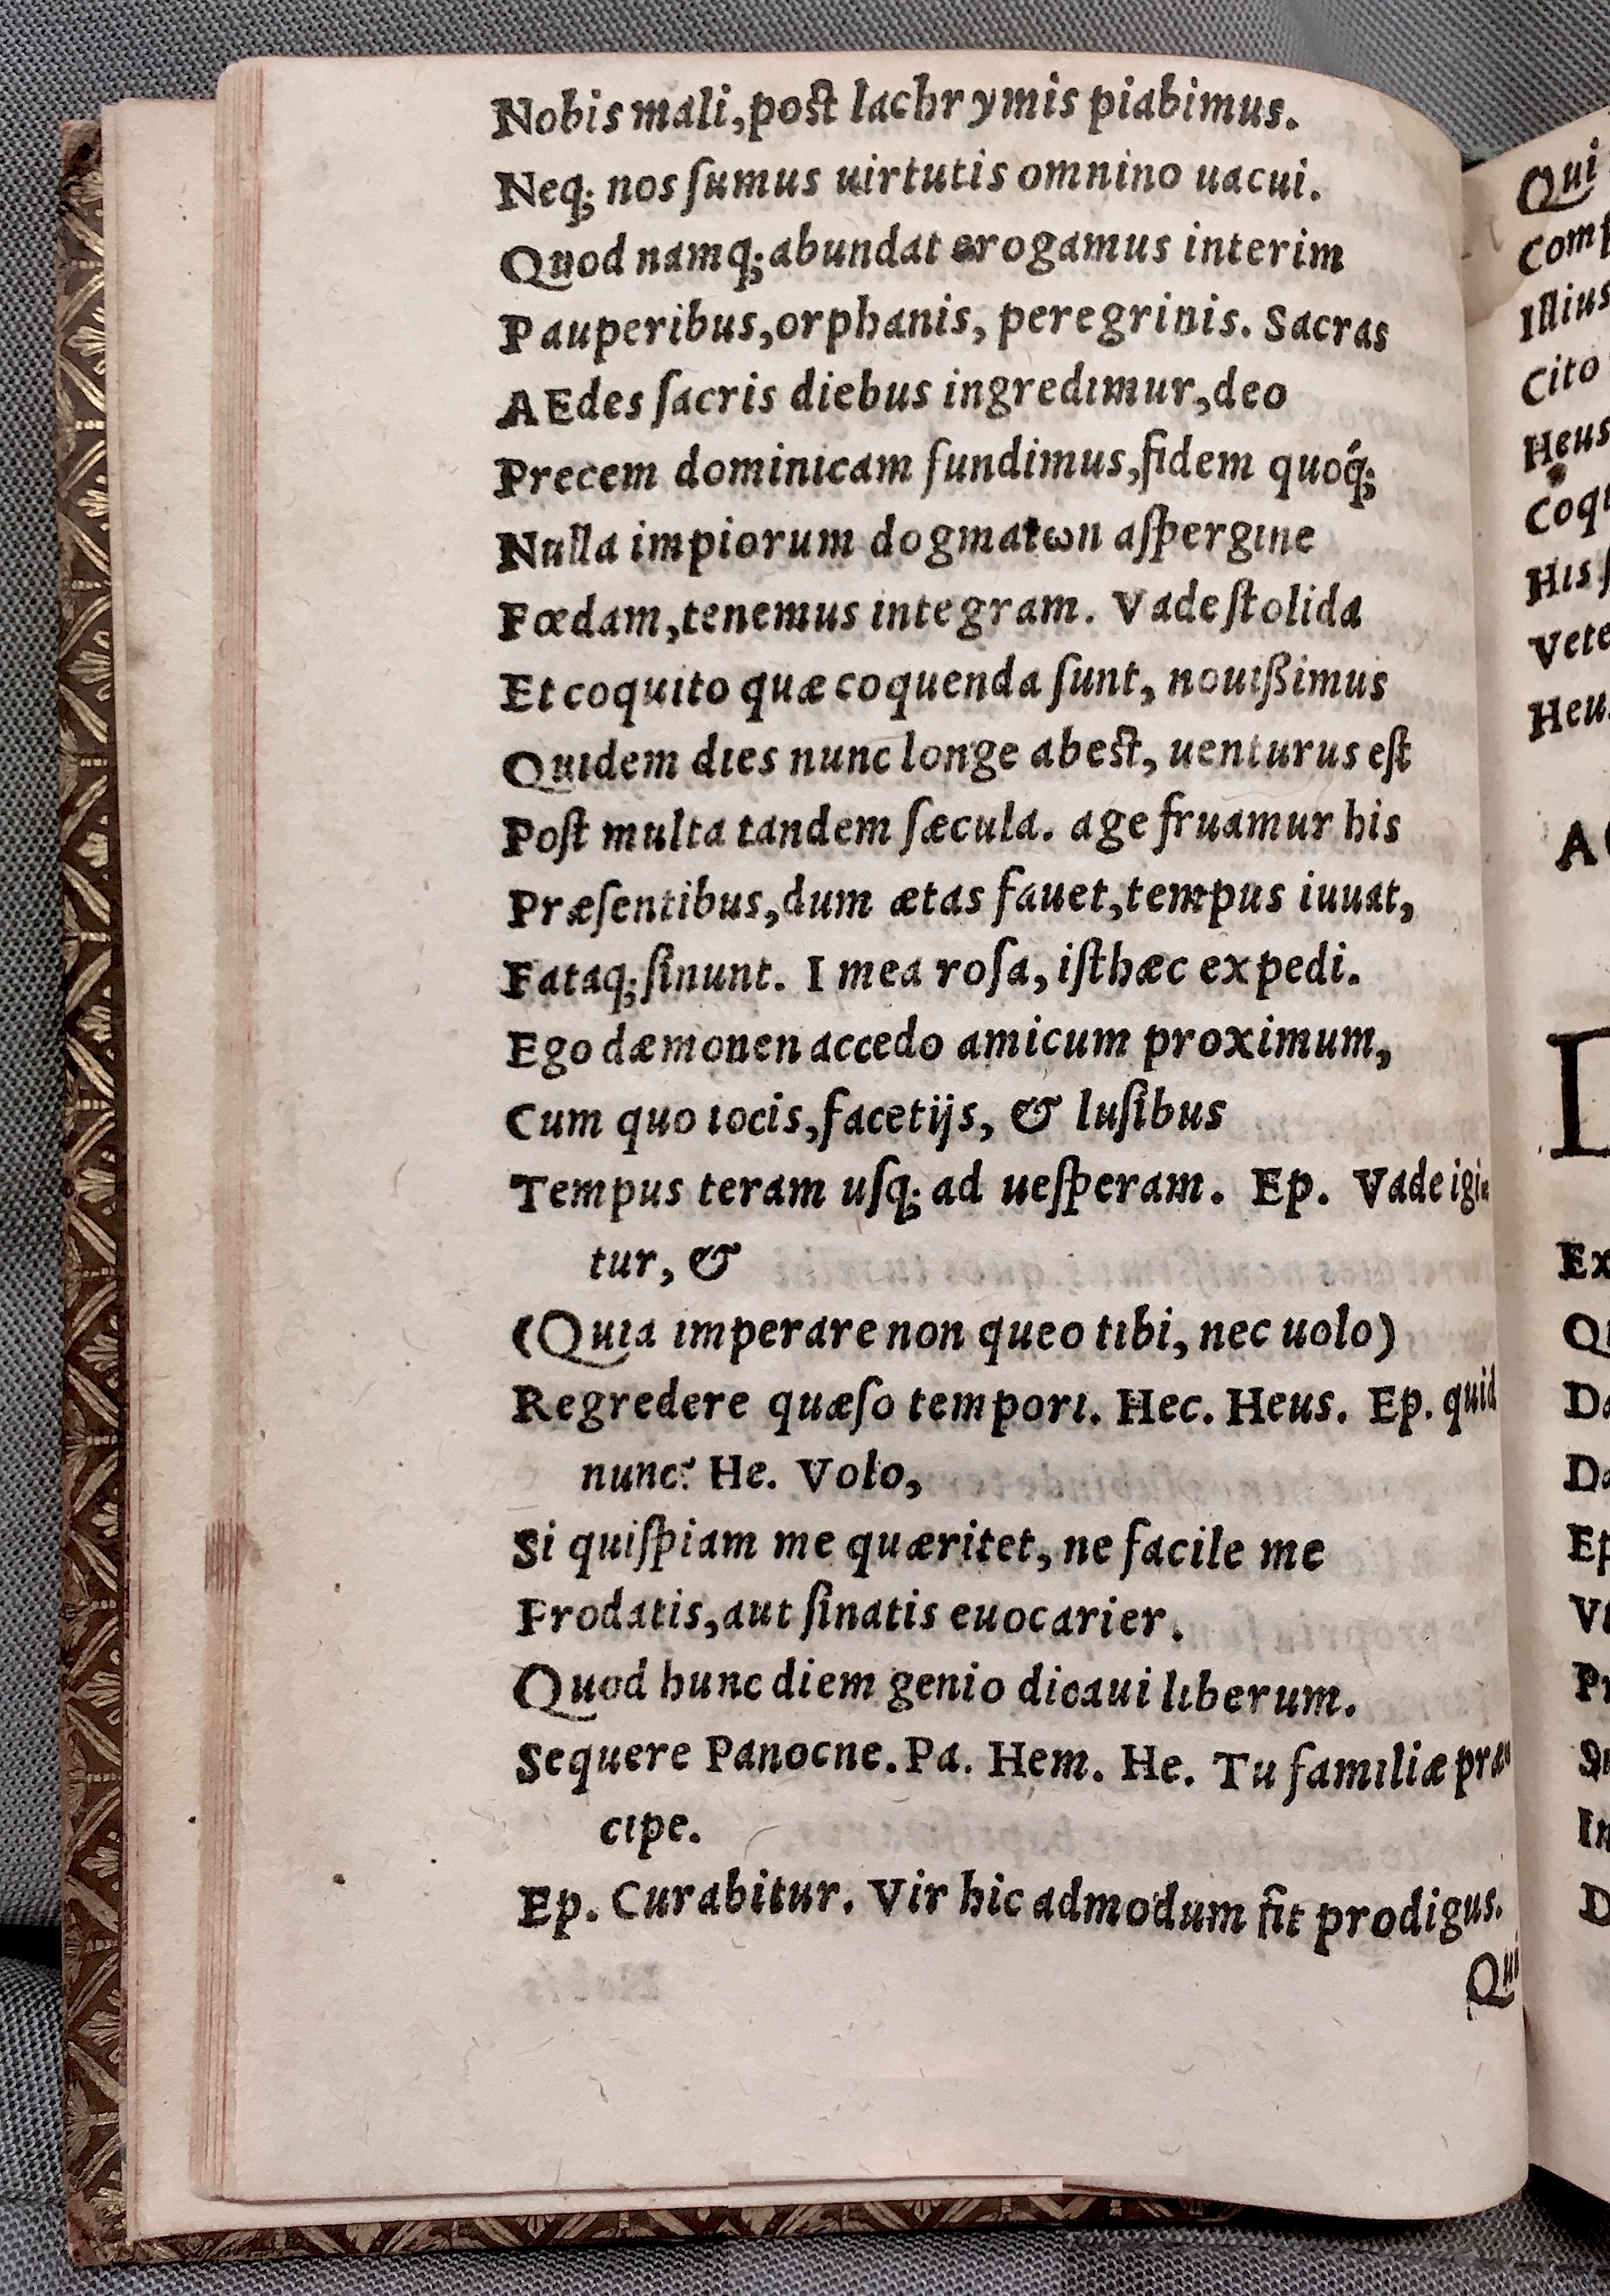 Nobis mali, poſt lachrymis piabimus.
Neq; nos ſumus uirtutis omnino uacui.
Quod namq; abundat erogamus interim
Pauperibus, orphanis, peregrinis. Sacras
AEdes ſacris diebus ingredimur, deo
Precem dominicam fundimus, fidem quoq́;
Nulla impiorum dogmatωn aſpergine
Fœdam, tenemus integram. Vade ſtolida
Et coquito quæ coquenda ſunt, nouißimus
Quidem dies nunc longe abeſt, uenturus eſt
Poſt multa tandem ſæcula. age fruamur his
Præſentibus, dum ætas fauet, tempus iuuat,
Fataq; ſinunt. I mea roſa, iſthæc expedi.
Ego dæmonen accedo amicum proximum,
Cum quo iocis, facetijs, & luſibus
Tempus teram uſq; ad ueſperam. Ep. Vade igi-
tur, &
(Quia imperare non queo tibi, nec uolo)
Regredere quæſo tempori. Hec. Heus. Ep. quid
nunc? He. Volo,
Si quiſpiam me quæritet, ne facile me
Prodatis, aut ſinatis euocarier.
Quod hunc diem genio dicaui liberum.
Sequere Panocne. Pa. Hem. He. Tu familiæ præ-
cipe.
Ep. Curabitur. Vir hic admodum fit prodigus.
Qui
Qui
Illius
Cito
Heus
His
A
Ex